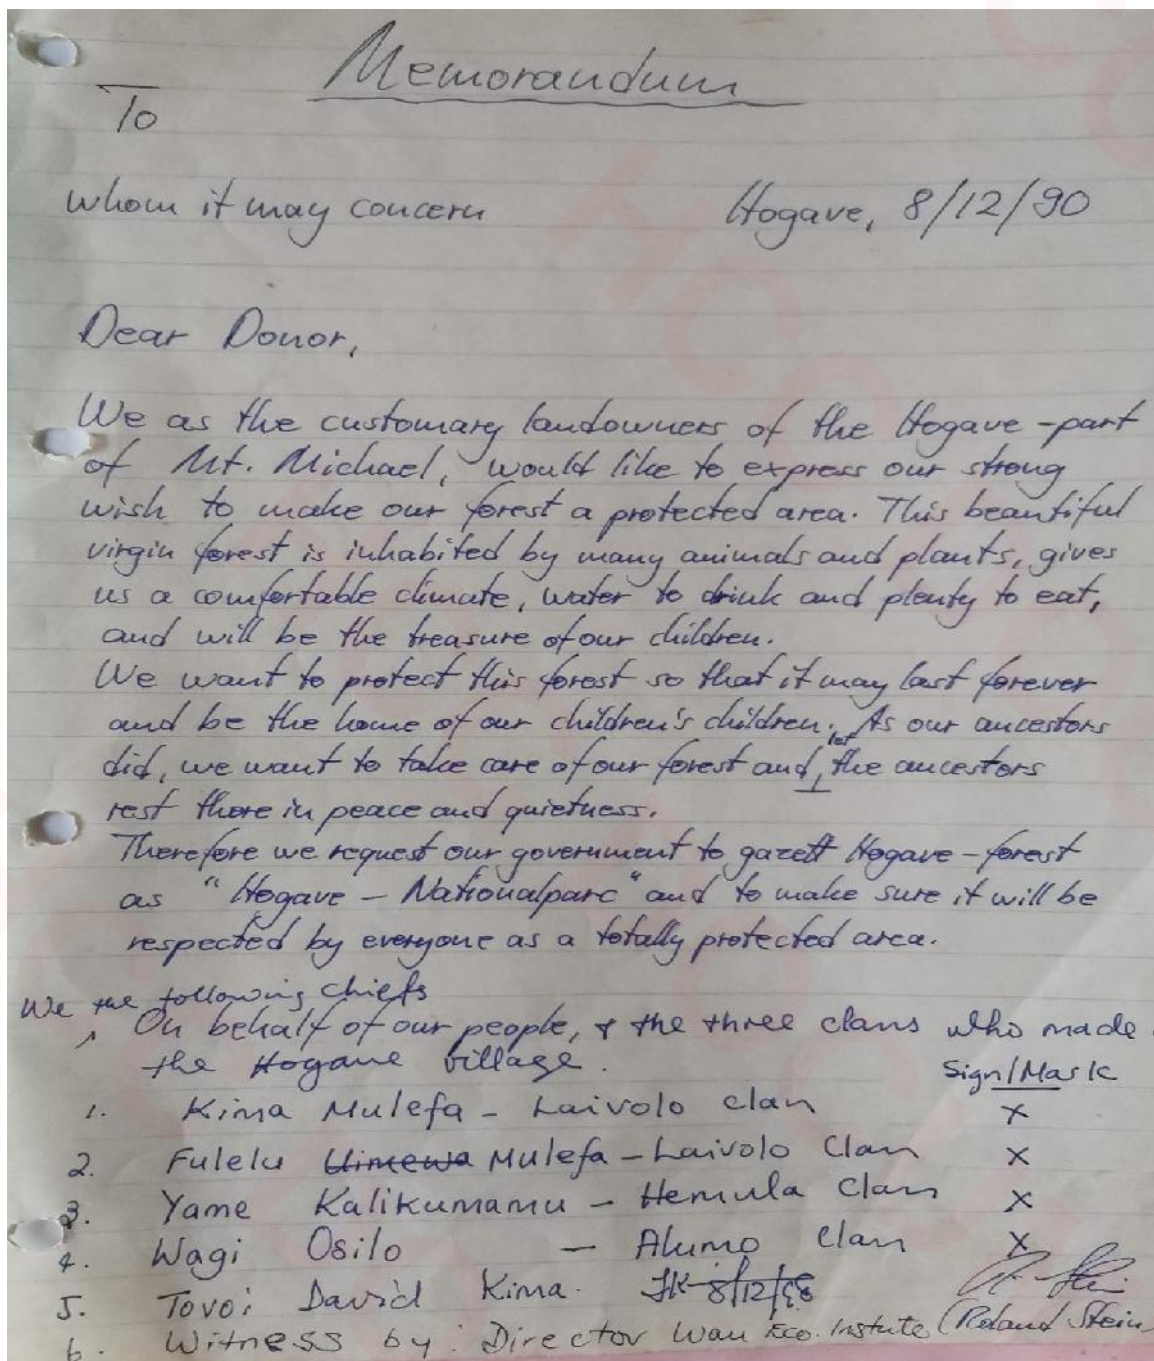 Memorandum
To
whom it may concern Hogave, 8/12/90
Dear Donor,
We as the customary landowners of the Hogave-part
of Mt. Michael, would like to express our strong
wish to make our forest a protected area. This beautiful
virgin forest is inhabited by many animals and plants, gives
us a comfortable climate, water to drink and plenty to eat,
and will be the treasure of our children.
We want to protect this forest so that it may last forever
and be the home of our children's children. As our ancestors
did, we want to take care of our forest and let the ancestors
rest there in peace and quietness.
Therefore we request our government to gazett Hogave-forest
as "Hogave - Nationalparc" and to make sure it will be
respected by everyone as a totally protected area.
We the following chiefs
On behalf of our people, & the three clans who made
the Hogave village.
Sign/Mark
1. Kima Mulefa - Laivolo clan X
2. Fulelu Mulefa - Laivolo Clan X
3. Yame Kalikumamu - Hemula Clan X
4. Wagi Osilo - Alumo Clan X
5. Tovoi David Kima.
6. Witness by: Director Wau Eco. Instute (Roland Stein